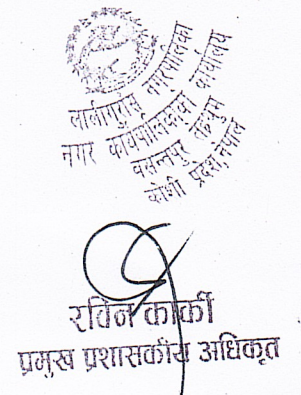 लालीगुराँस नगरपालिका
नगर कार्यपालिकाको कार्यालय
वसन्तपुर तेह्रथुम
कोशी प्रदेश, नेपाल
रविन कार्की
प्रमुख प्रशासकीय अधिकृत